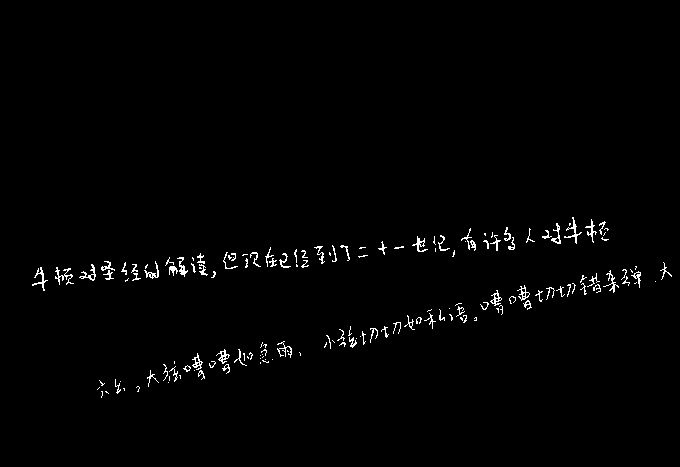 牛顿对圣经的解读,但现在已经到了二十一世纪,有许多人对牛顿
六幺。大弦嘈嘈如急雨,小弦切切如私语。嘈嘈切切错杂弹,大